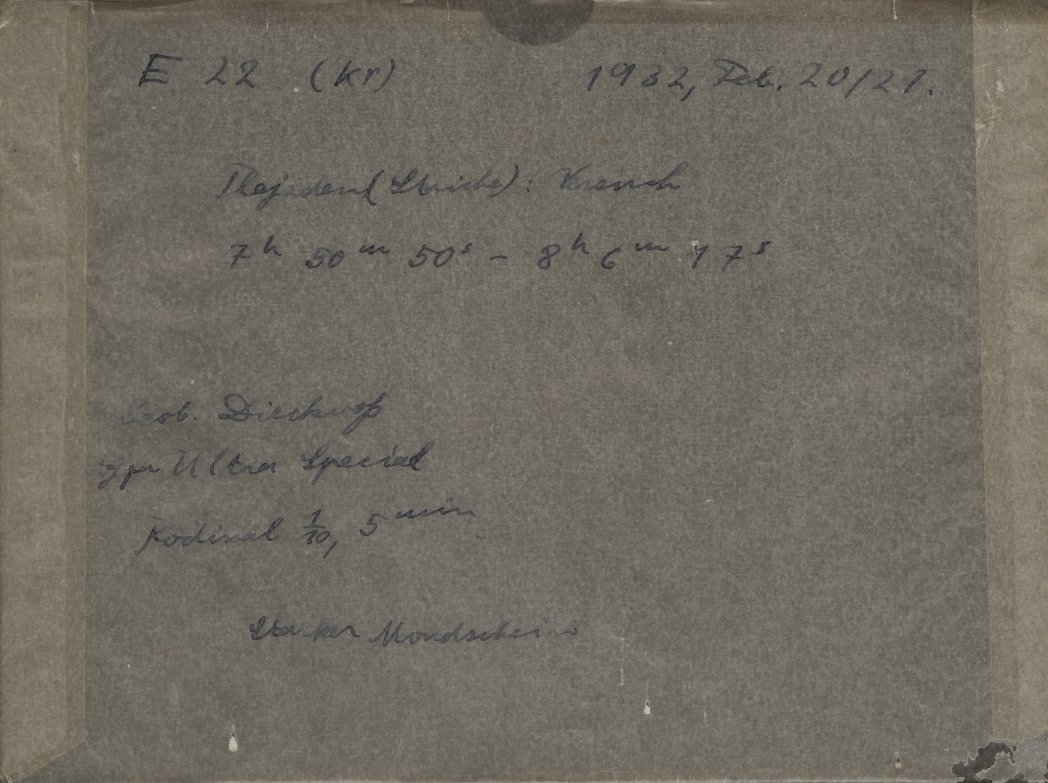 E 22 (Kr) 1932, Feb. 20/21.
Plejaden (Striche): Kranich
7h 50m 50s - 8h 6m 17s
Beob. Dieckvoß
Ultra Special
Rodinal 1/10, 5 min
Starker Mondschein